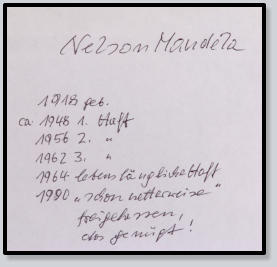 Nelson Mandela
1918 geb.
ca. 1948 1. Haft
1956 2. "
1962 3. "
1964 lebenslängliche Haft
1990 "schon
freigelassen,
das genügt!